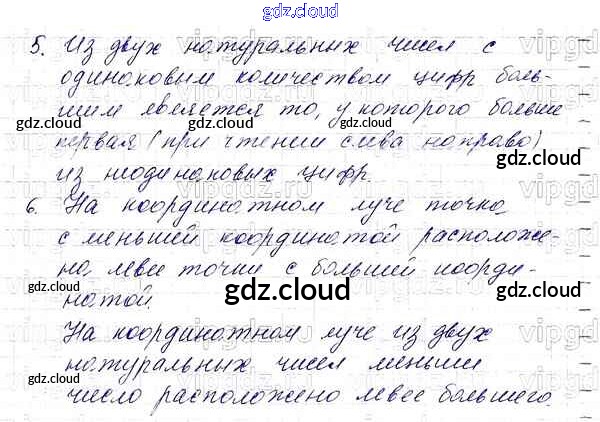 gdz.cloud
5. Из двух натуральных чисел с
одинаковым количеством цифр боль-
шим является то, у которого больше
первая (при чтении слева направо)
из неодинаковых цифр.
6. На координатном луче точка
с меньшей координатой расположе-
на левее точки с большей коорди-
натой.
На координатном луче из двух
натуральных чисел меньшее
число расположено левее большего.
gdz.cloud
gdz.cloud
gdz.cloud
gdz.cloud
gdz.cloud
gdz.cloud
gdz.cloud
gdz.cloud